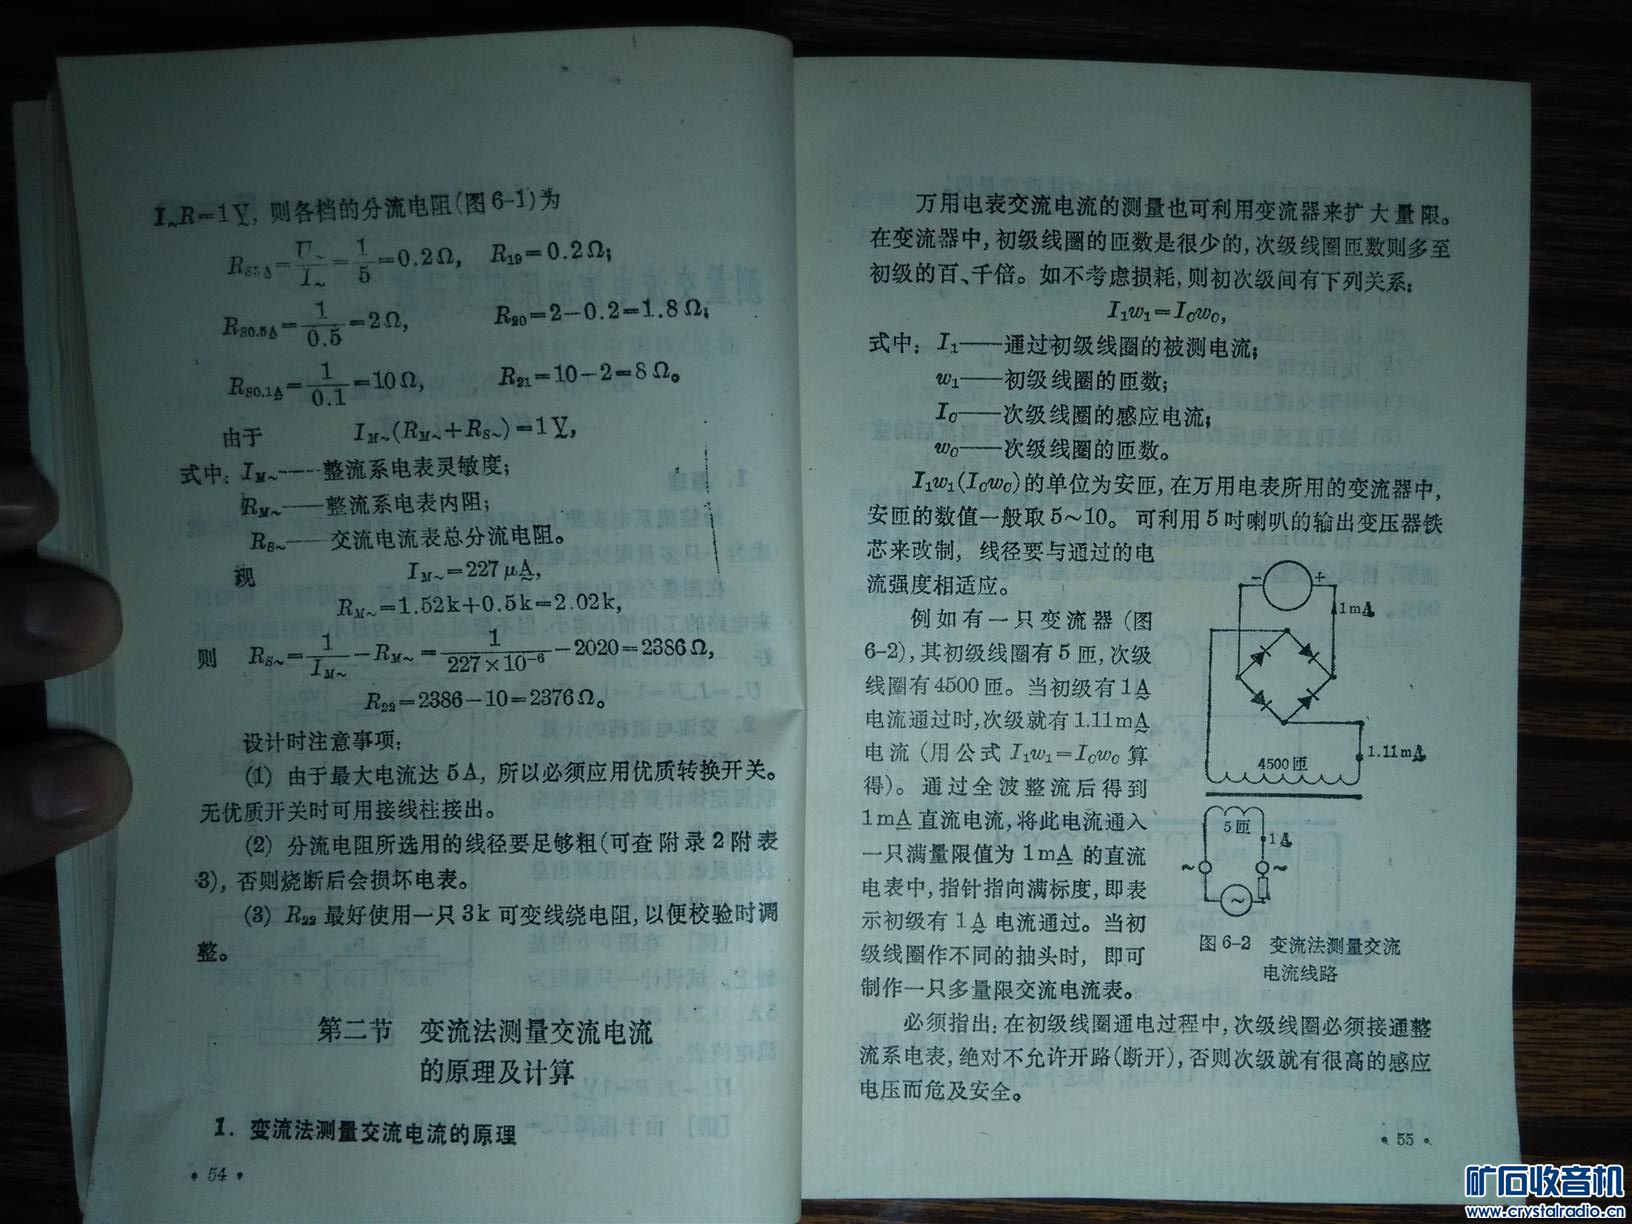 I~R=1V, 则各档的分流电阻(图6-1)为
R_S5A=U~/I~=1/5=0.2Ω, R₁₉=0.2Ω;
R_S0.5A=1/0.5=2Ω, R₂₀=2-0.2=1.8Ω;
R_S0.1A=1/0.1=10Ω, R₂₁=10-2=8Ω。
由于 I_M~(R_M~+R_S~)=1V,
式中: I_M~——整流系电表灵敏度;
R_M~——整流系电表内阻;
R_S~——交流电流表总分流电阻。
现 I_M~=227μA,
R_M~=1.52k+0.5k=2.02k,
则 R_S~=1/I_M~-R_M~=1/227×10⁻⁶-2020=2386Ω,
R₂₂=2386-10=2376Ω。
设计时注意事项:
(1) 由于最大电流达5A, 所以必须应用优质转换开关。
无优质开关时可用接线柱接出。
(2) 分流电阻所选用的线径要足够粗(可查附录2附表
3), 否则烧断后会损坏电表。
(3) R₂₂最好使用一只3k可变线绕电阻, 以便校验时调
整。
第二节 变流法测量交流电流
的原理及计算
1. 变流法测量交流电流的原理
• 54 •
万用电表交流电流的测量也可利用变流器来扩大量限。
在变流器中, 初级线圈的匝数是很少的, 次级线圈匝数则多至
初级的百、千倍。如不考虑损耗, 则初次级间有下列关系:
I₁w₁=I₀w₀,
式中: I₁——通过初级线圈的被测电流;
w₁——初级线圈的匝数;
I₀——次级线圈的感应电流;
w₀——次级线圈的匝数。
I₁w₁(I₀w₀)的单位为安匝, 在万用电表所用的变流器中,
安匝的数值一般取5~10。可利用5吋喇叭的输出变压器铁
芯来改制, 线径要与通过的电
流强度相适应。
例如有一只变流器(图
6-2), 其初级线圈有5匝, 次级
线圈有4500匝。当初级有1A
电流通过时, 次级就有1.11mA
电流(用公式I₁w₁=I₀w₀算
得)。通过全波整流后得到
1mA直流电流, 将此电流通入
一只满量限值为1mA的直流
电表中, 指针指向满标度, 即表
示初级有1A电流通过。当初
级线圈作不同的抽头时, 即可
制作一只多量限交流电流表。
- +
1mA
1.11mA
4500匝
5匝
1A
~ ~
~
图6-2 变流法测量交流
电流线路
必须指出: 在初级线圈通电过程中, 次级线圈必须接通整
流系电表, 绝对不允许开路(断开), 否则次级就有很高的感应
电压而危及安全。
• 55 •
矿石收音机
www.crystalradio.cn